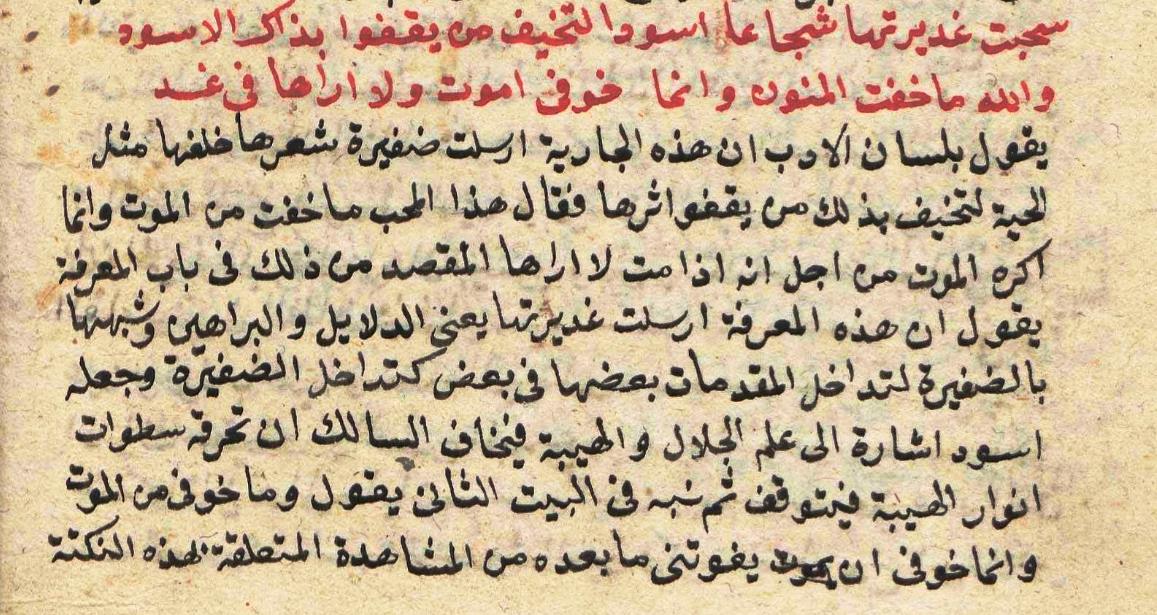 سحبت غديرتها شجاعا اسودا لتخيف من يقفوا بذاك الاسود
والله ما خفت المنون وانما خوفى اموت ولا اراها فى غد
يقول بلسان الادب ان هذه الجارية ارسلت ضفيرة شعرها خلفها مثل
الحية لتخيف بذلك من يقفوا اثرها فقال هذا المحب ما خفت من الموت وانما
اكره الموت من اجل انه اذا مت لا اراها المقصد من ذلك فى باب المعرفة
يقول ان هذه المعرفة ارسلت غديرتها يعنى الدلايل والبراهين وشبهها
بالضفيرة لتداخل المقدمات بعضها فى بعض كتداخل الضفيرة وجعله
اسود اشارة الى علم الجلال والهيبة فيخاف السالك ان تحرقه سطوات
انوار الهيبة فيتوقف ثم نبه فى البيت الثانى يقول وما خوفى من الموت
وانما خوفى ان يفوتنى ما بعده من المشاهدة المتعلقة بهذه النكتة